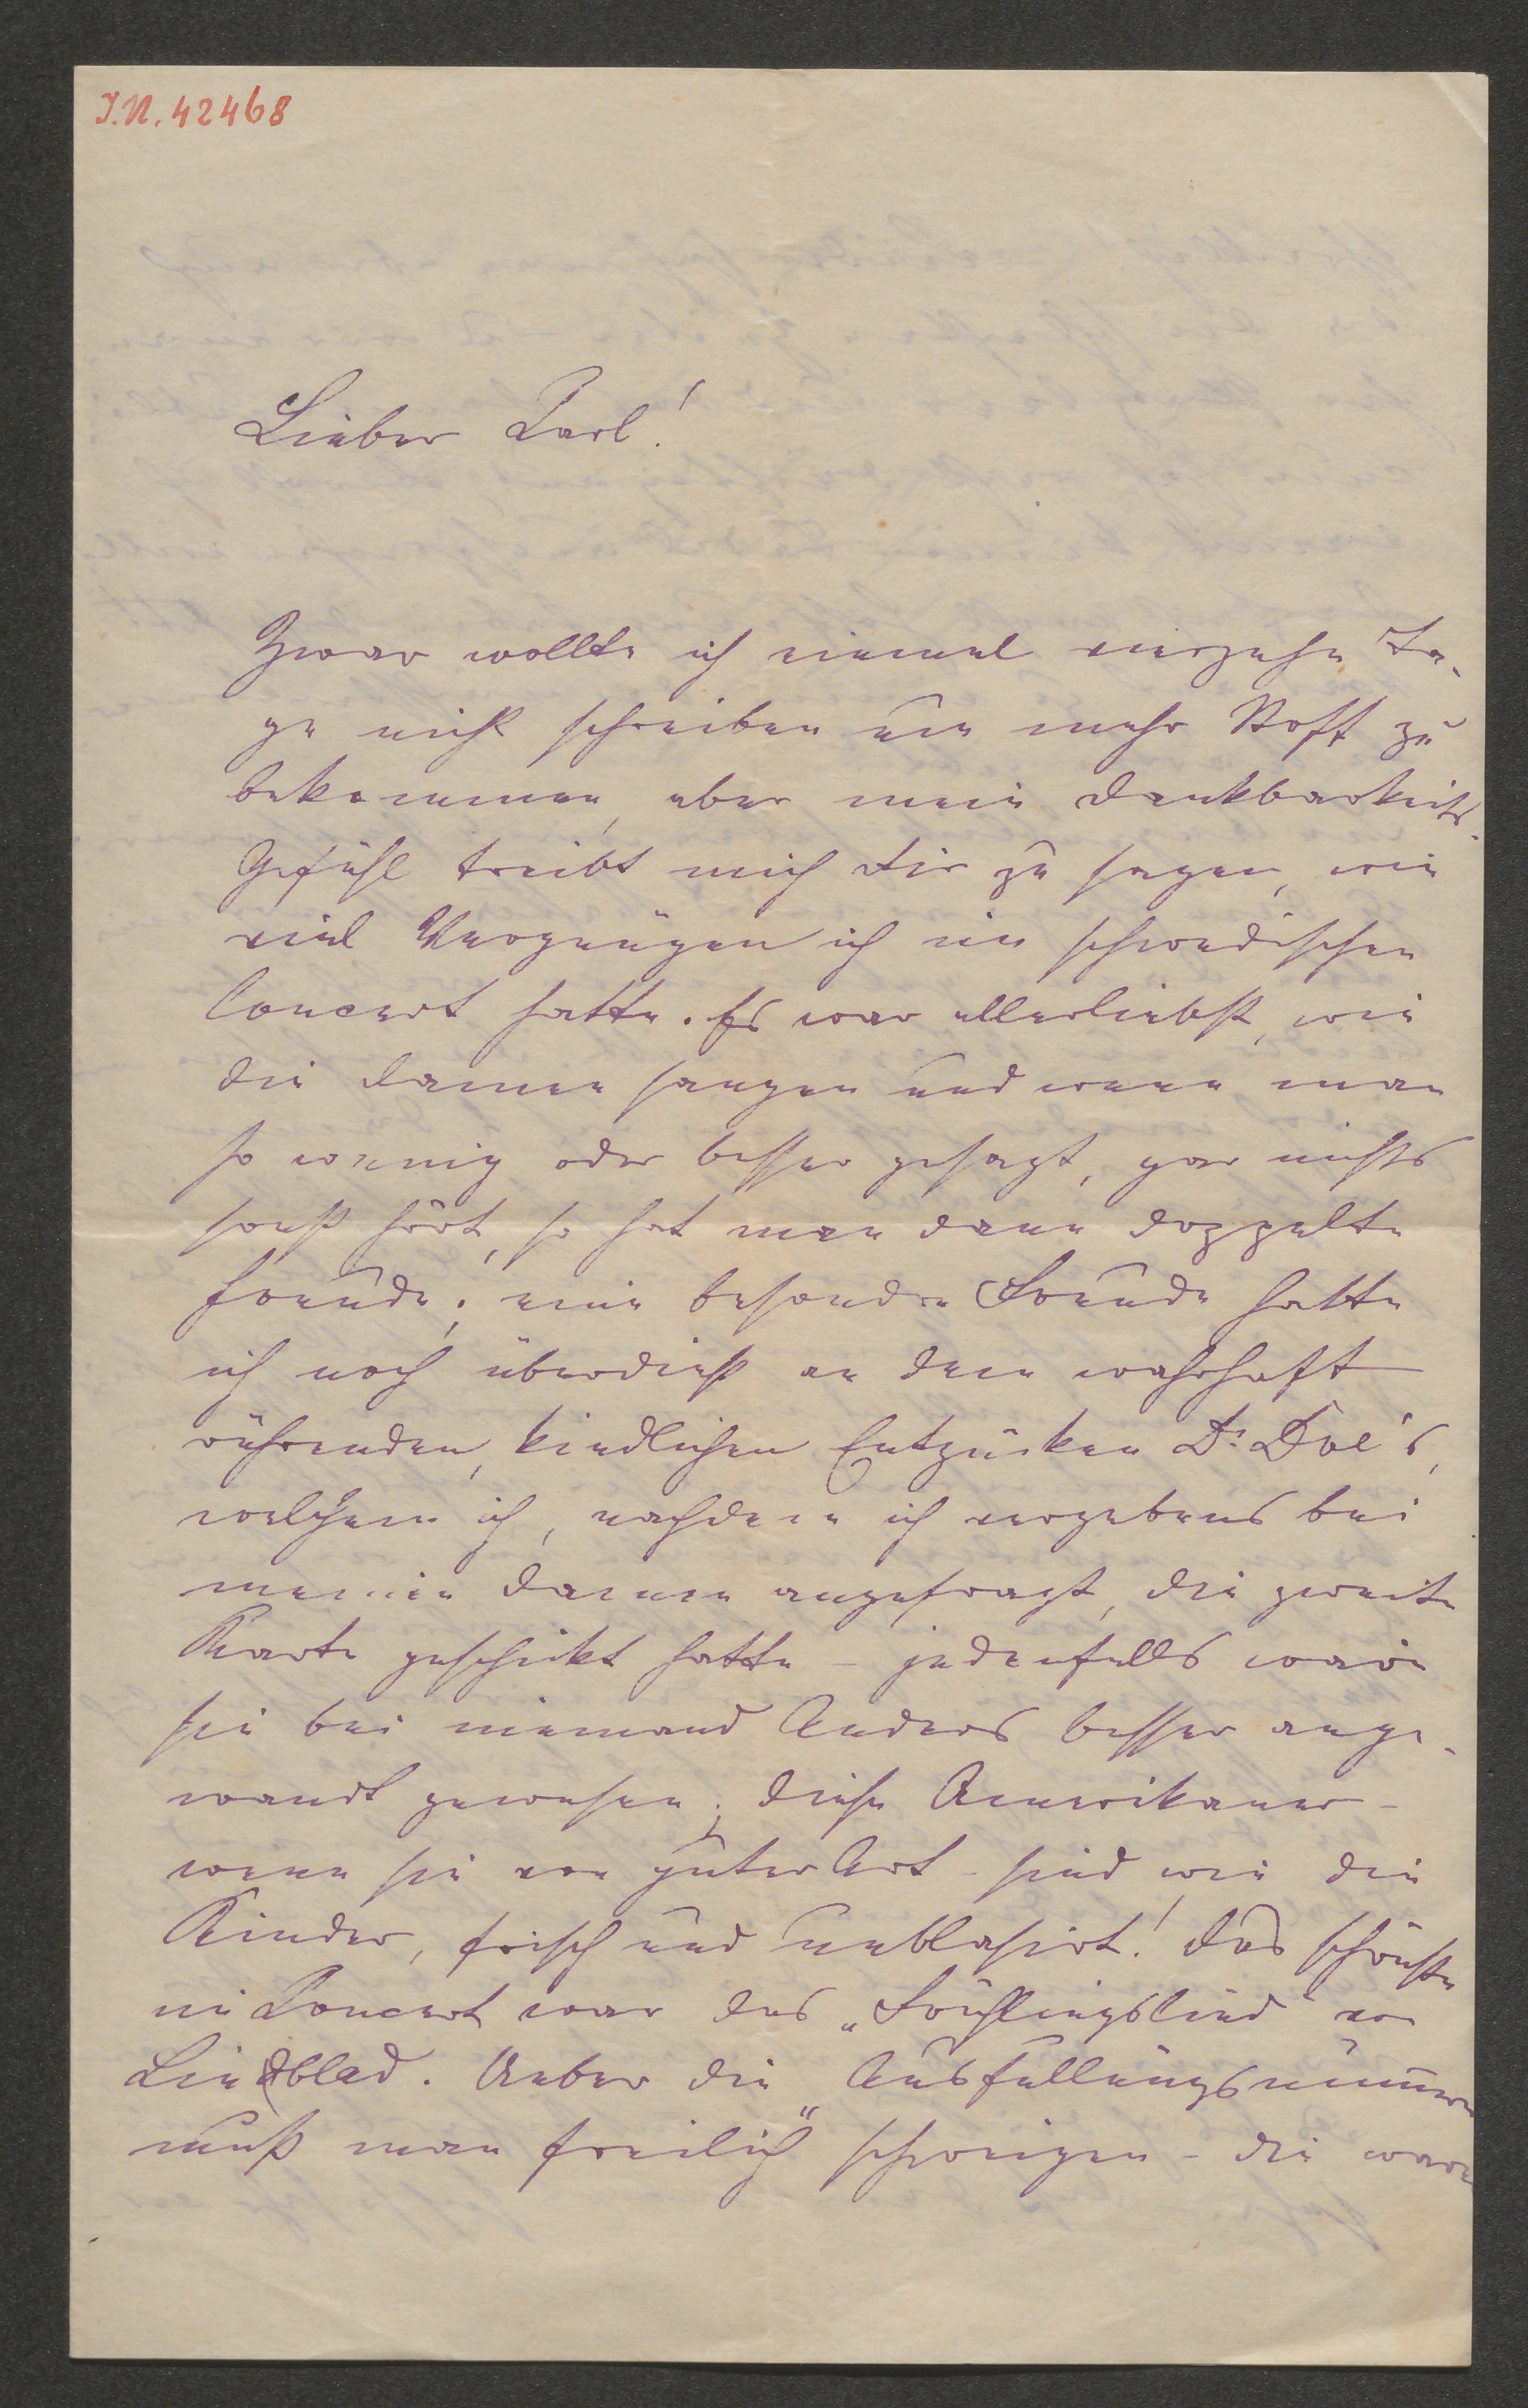 J.N. 42468
Lieber Carl!
Zwar wollte ich einmal vierzehn Ta-
ge nicht schreiben um mehr Stoff zu
bekommen, aber mein Dankbarkeits-
Gefühl treibt mich Dir zu sagen, wie
viel Vergnügen ich im schwedischen
Concert hatte. Es war allerliebst, wie
die Damen sangen und wenn man
so wenig oder besser gesagt, gar nichts
sonst hört, so hat man dann doppelte
Freude; eine besondre Freude hatte
ich noch überdieß an dem wahrhaft
rührenden, kindlichen Entzücken Dr Doe's,
welchem ich, nachdem ich vergebens bei
meinen Damen angefragt, die zweite
Karte geschickt hatte – jedenfalls wäre
sie bei niemand Anders besser ange-
wandt gewesen; diese Amerikaner –
wenn sie von guter Art – sind wie die
Kinder, frisch und unblasirt! Das schönste
im Concert war das „Frühlingslied" von
Lindblad. Ueber die „Ausfüllungsnummern
muß man freilich" schweigen – die waren